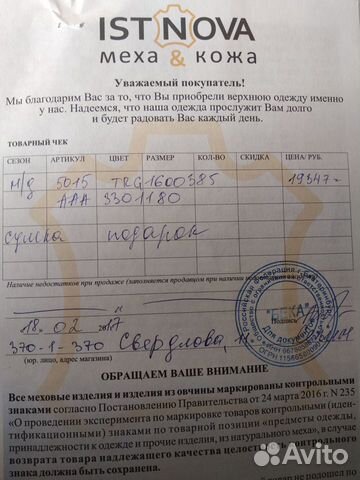 IST NOVA
меха & кожа
Уважаемый покупатель!
Мы благодарим Вас за то, что Вы приобрели верхнюю одежду именно
у нас. Надеемся, что наша одежда прослужит Вам долго
и будет радовать Вас каждый день.
ТОВАРНЫЙ ЧЕК
СЕЗОН АРТИКУЛ ЦВЕТ РАЗМЕР КОЛ-ВО СКИДКА ЦЕНА/ РУБ.
м/д 5015 TRG1600385 19347=
AAA 3301180
сумка подарок
Наличие недостатков при продаже (заполняется продавцом при
"ВЕКА"
Для документов
Подпись
18. 02 2017
370-1-370 Свердлова,
(юр. лицо, адрес магазина)
ОБРАЩАЕМ ВАШЕ ВНИМАНИЕ
Все меховые изделия и изделия из овчины маркированы контрольными
знаками согласно Постановлению Правительства от 24 марта 2016 г. N 235
«О проведении эксперимента по маркировке товаров контрольными (иден-
тификационными) знаками по товарной позиции «предметы одежды,
принадлежности к одежде и прочие изделия, из натурального меха», в случае
возврата товара надлежащего качества целостность контрольного
знака должна быть сохранена.
товар не подошел по
Avito